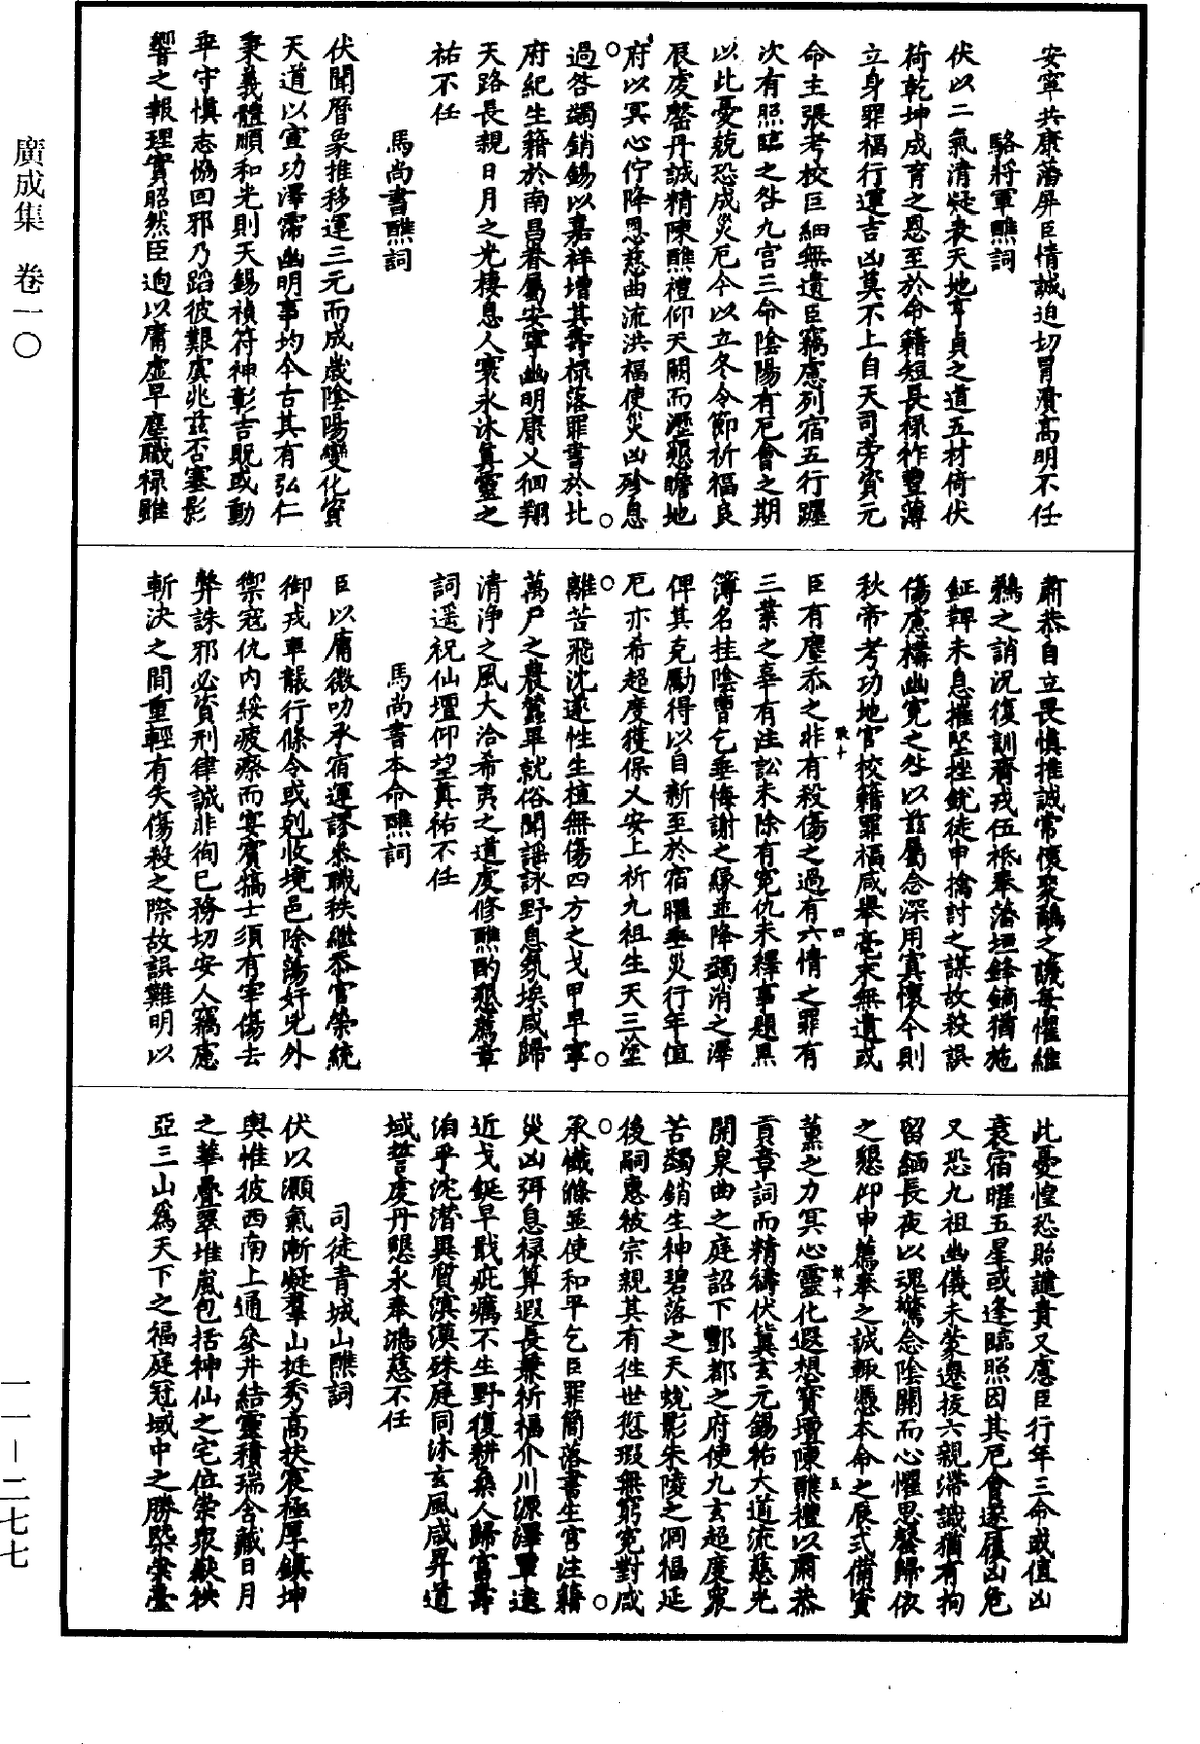 廣成集 卷一〇
安寧共康藩屏臣情誠迫切冒瀆高明不任
駱將軍醮詞
伏以二氣清凝表天地亨貞之道五材倚伏
荷乾坤成育之恩至於命籍短長祿祚豐薄
立身罪福行運吉凶莫不上自天司旁資元
命主張考校巨細無遺臣竊慮列宿五行躔
次有照臨之咎九宮三命陰陽有厄會之期
以此憂兢恐成災厄今以立冬令節祈福良
辰虔罄丹誠精陳醮禮仰天闕而瀝懇瞻地
府以冥心佇降恩慈曲流洪福使災凶殄息
過咎蠲銷錫以嘉祥增其壽祿落罪書於北
府紀生籍於南昌眷屬安寧幽明康乂徊翔
天路長親日月之光棲息人寰永沐真靈之
祐不任
馬尚書醮詞
伏聞曆象推移運三元而成歲陰陽變化資
天道以宣功澤霈幽明事均今古其有弘仁
秉義體順和光則天錫禎符神彰吉貺或動
乖守慎志惱回邪乃蹈彼艱虞兆茲否塞影
響之報理實昭然臣迥以庸虛早塵職祿雖
肅恭自立畏慎推誠常懷聚鷸之譏每懼維
鵜之誚況復訓齊戎伍祗奉藩垣鋒鏑猶施
鉦鞞未息摧堅挫銳徒申擒討之謀故殺誤
傷慮構幽冤之咎以茲屬念深用寘懷今則
秋帝考功地官校籍罪福咸舉毫末無遺或
臣有塵忝之非有殺傷之過有六情之罪有
三業之辜有注訟未除有冤仇未釋事題黑
簿名挂陰曹乞垂悔謝之緣並降蠲消之澤
俾其克勵得以自新至於宿曜垂災行年值
厄亦希超度獲保乂安上祈九祖生天三塗
離苦飛沈遂性生植無傷四方之戈甲早寧
萬戶之農蠶畢就俗聞謠詠野息氛埃咸歸
清淨之風大洽希夷之道虔修醮酌懇薦章
詞遥祝仙壇仰望真祐不任
馬尚書本命醮詞
臣以庸微叨承宿運謬忝職秩繼忝官榮統
御戎車龔行條令或剋收境邑除蕩奸兇外
禦寇仇內綏疲瘵而宴賓犒士須有宰傷去
弊誅邪必資刑律誠非徇己務切安人竊慮
斬決之間重輕有失傷殺之際故誤難明以
此憂惶恐貽譴責又慮臣行年三命或值凶
衰宿曜五星或逢臨照因其厄會遂履凶危
又恐九祖幽儀未蒙遷拔六親滯識猶有拘
留緬長夜以魂驚念陰關而心懼思罄歸依
之懇仰申薦奉之誠輒憑本命之辰式備資
薰之力冥心靈化遐想寶壇陳醮禮以肅恭
貢章詞而精禱伏冀玄元錫祐大道流慈光
開泉曲之庭詔下酆都之府使九玄超度眾
苦蠲銷生神碧落之天蛻影朱陵之洞福延
後嗣惠被宗親其有往世愆瑕無窮冤對咸
承懺滌並使和平乞臣罪簡落書生宮注籍
災凶弭息祿算遐長兼祈福介川源澤覃遠
近戈鋋早戢疵癘不生野復耕桑人歸富壽
洎乎沈潛異質濱漠殊庭同沐玄風咸昇道
域誓虔丹懇永奉鴻慈不任
司徒青城山醮詞
伏以灝氣漸凝羣山挺秀高扶寰極厚鎮坤
輿惟彼西南上通參井結靈積瑞含藏日月
之華疊翠堆嵐包括神仙之宅位崇眾嶽秩
亞三山為天下之福庭冠域中之勝槩棠臺
一一—二七七